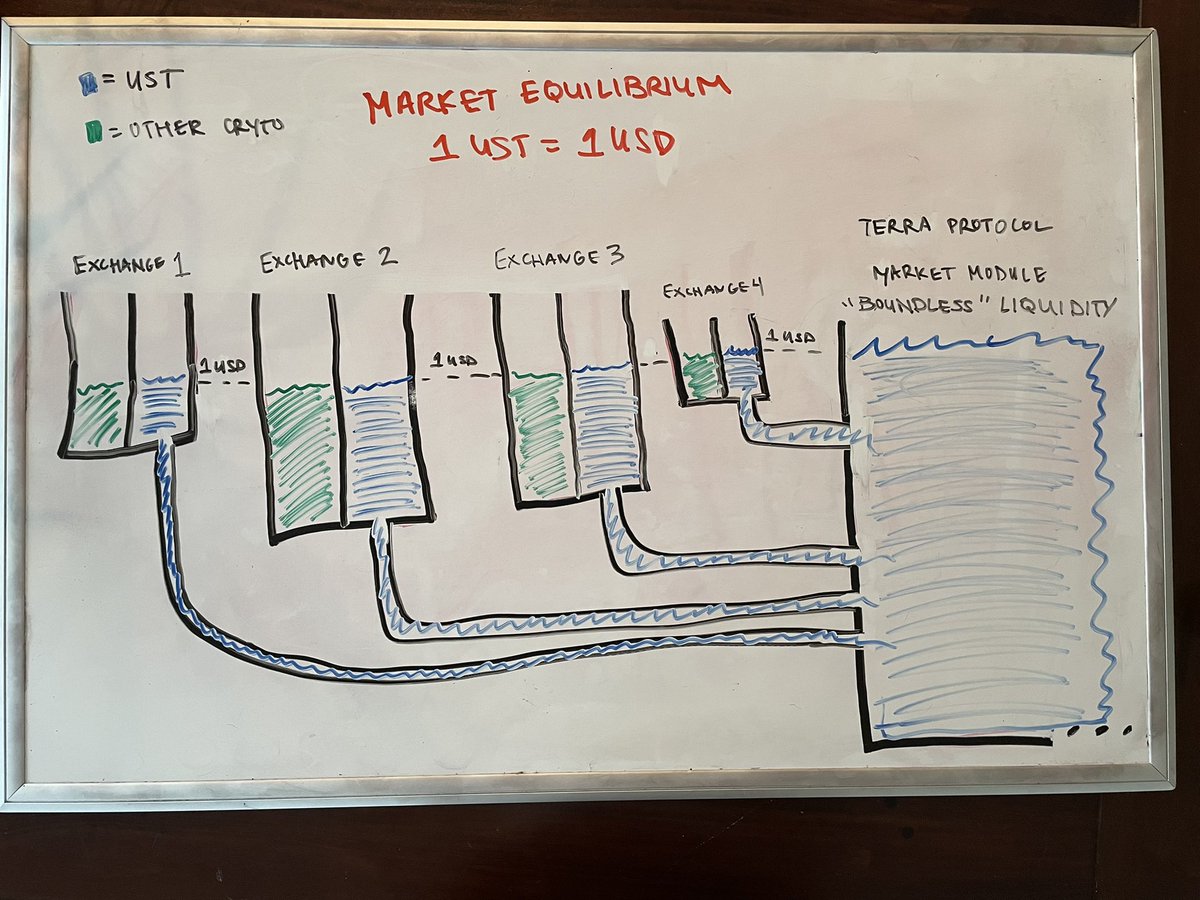 = UST
= OTHER CRYTO
MARKET EQUILIBRIUM
1 UST = 1 USD
EXCHANGE 1
EXCHANGE 2
EXCHANGE 3
EXCHANGE 4
TERRA PROTOCOL
MARKET MODULE
"BOUNDLESS" LIQUIDITY
1 USD
1 USD
1 USD